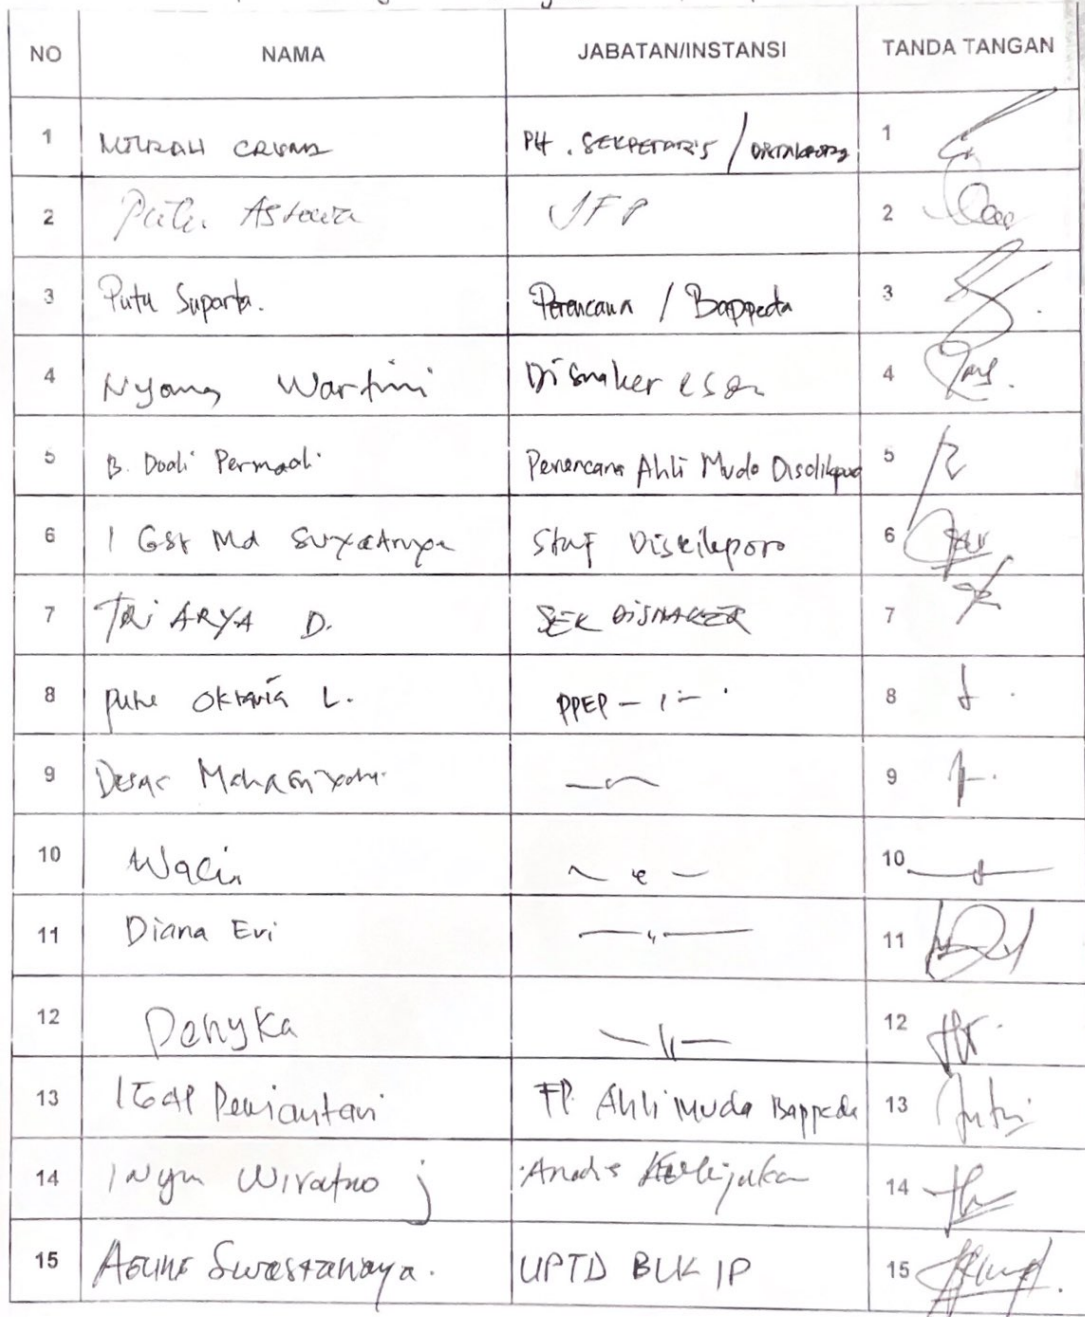 NO NAMA JABATAN/INSTANSI TANDA TANGAN
1 PH. SEKPETARIS / 1
2 Putu Astawa JFP 2
3 Putu Suparta. Perencana / Bappeda 3
4 Nyoman Wartini Disnaker ESDM 4
5 B. Dodi Permadi Perencana Ahli Muda Disdikpora 5
6 I Gst Md Staf Disdikpora 6
7 TRi ARYA D. SEK DISNAKER 7
8 Putu Oktavia L. PPEP - 〃 - 8
9 Desak 9
10 - 〃 - 10
11 Diana Evi - 〃 - 11
12 Denyka - 〃 - 12
13 IGAP Deviantari FP. Ahli Muda Bappeda 13
14 I Nym Wiratno j 14
15 Agung Swastanaya. UPTD BLK IP 15